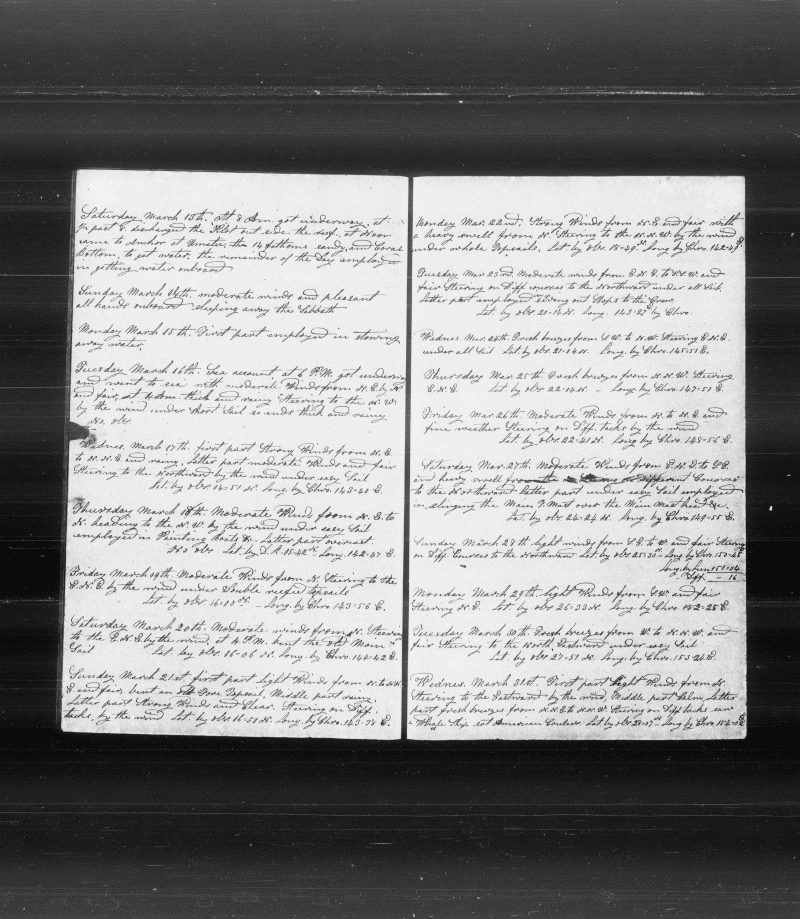 Saturday March 13th. At 8 Am got underway, at
½ past 9 discharged the Pilot outside the reef, at Noon
came to anchor at Umatac, the 14 fathoms sandy, and Coral
bottom, to get water, the remainder of the Day employed
in getting water onboard
Sunday March 14th. moderate winds and pleasant
all hands onboard sleeping away the Sabbath
Monday March 15th. First part employed in stowing
away water,
Tuesday March 16th. Sea account at 6 P.M. got underway
and went to sea with moderate Winds from N.E. by N
and fair, at 4 Am thick and rainy Steering to the N.W.
by the wind under short Sail so ends thick and rainy
No. obs.
Wednes. March 17th. first part Strong Winds from N.E.
to N.N.E and rainy, Latter part moderate Winds and fair
Steering to the Northward by the wind under easy Sail
Lat. by obs. 14-51 N. Long. by Chro. 143-40 E.
Thursday March 18th. Moderate Winds from N.E. to
N. heading to the N.W. by the wind under easy Sail
employed in Painting boats &c. Latter part overcast.
No obs Lat by D.R. 15-42 N. Long. 142-47 E.
Friday March 19th. Moderate Winds from N. Steering to the
E.N.E. by the wind under Double reefed Topsails
Lat by obs. 16-13 N. - Long. by Chro. 143-56 E.
Saturday March 20th. Moderate winds from N. Steering
to the E.N.E by the wind, at 4 P.M. bent the old Main
Sail Lat. by obs. 16-06 N. Long. by Chro. 144-42 E.
Sunday March 21st, first part light Winds from N. to N.N.
E and fair, bent an old Fore Topsail, Middle part rainy,
Latter part Strong Winds and Clear. Steering on Diff.
tacks, by the wind Lat by obs. 16-51 N. Long. by Chro. 143-38 E.
Monday Mar. 22nd. Strong Winds from N.E and fair with
a heavy swell from N. Steering to the N.N.W. by the wind
under whole Topsails. Lat. by obs. 18-49 N. Long by Chro. 142-47 E
Tuesday Mar 23rd. Moderate winds from E.N.E. to and
fair Steering on Diff courses to the Northward under all Sail
Latter part employed in Serving out Slops to the Crew.
Lat by obs. 20-14 N. Long. 143-27 by Chro.
Wednes. Mar. 24th. Fresh breezes from S.W. to N.W. Steering E.N.E.
under all Sail Lat. by obs. 21-04 N. Long. by Chro. 145-51 E.
Thursday Mar. 25th Fresh breezes from N.W. Steering
E.N.E. Lat by obs 22-14 N. - Long by Chro. 147-51 E
Friday Mar 26th. Moderate Winds from N. to N.E and
fine weather Steering on Diff. tacks by the wind
Lat by obs 22-41 N. Long by Chro. 148-56 E.
Saturday Mar. 27th. Moderate Winds from E.N.E. to S.E.
and heavy swell from the Steering on different Courses
to the Northward latter part under easy Sail employed
in slurging the Main T. Mast over the Main Mast head &c.
Lat. by obs. 24-24 N. Long. by Chro. 149-55 E.
Sunday March 28th. light winds from S.E. to W and fair Steering
on Diff Courses to the Northward Lat by obs 25-30 N Long by Chro. 150-48 E
Long. by Lun 151-04
Diff. - 16
Monday March 29th. light Winds from S.W. and fair
Steering N.E. Lat by obs 26-33 N. Long by Chro 152-25 E
Tuesday March 30th. Fresh breezes from W. to N.N.W. and
fair Steering to the North Eastward under easy Sail
Lat. by obs. 27-51 N. Long by Chro. 153-24 E.
Wednes. March 31st. First part light Wind from N.
Steering to the Eastward by the wind Middle part Calm, Latter
part fresh breezes from N.N.E to N.N.W. Steering on Diff tacks saw
Whale Ship set American Coulers Lat by obs 28-07 N Long by Chro 154- E